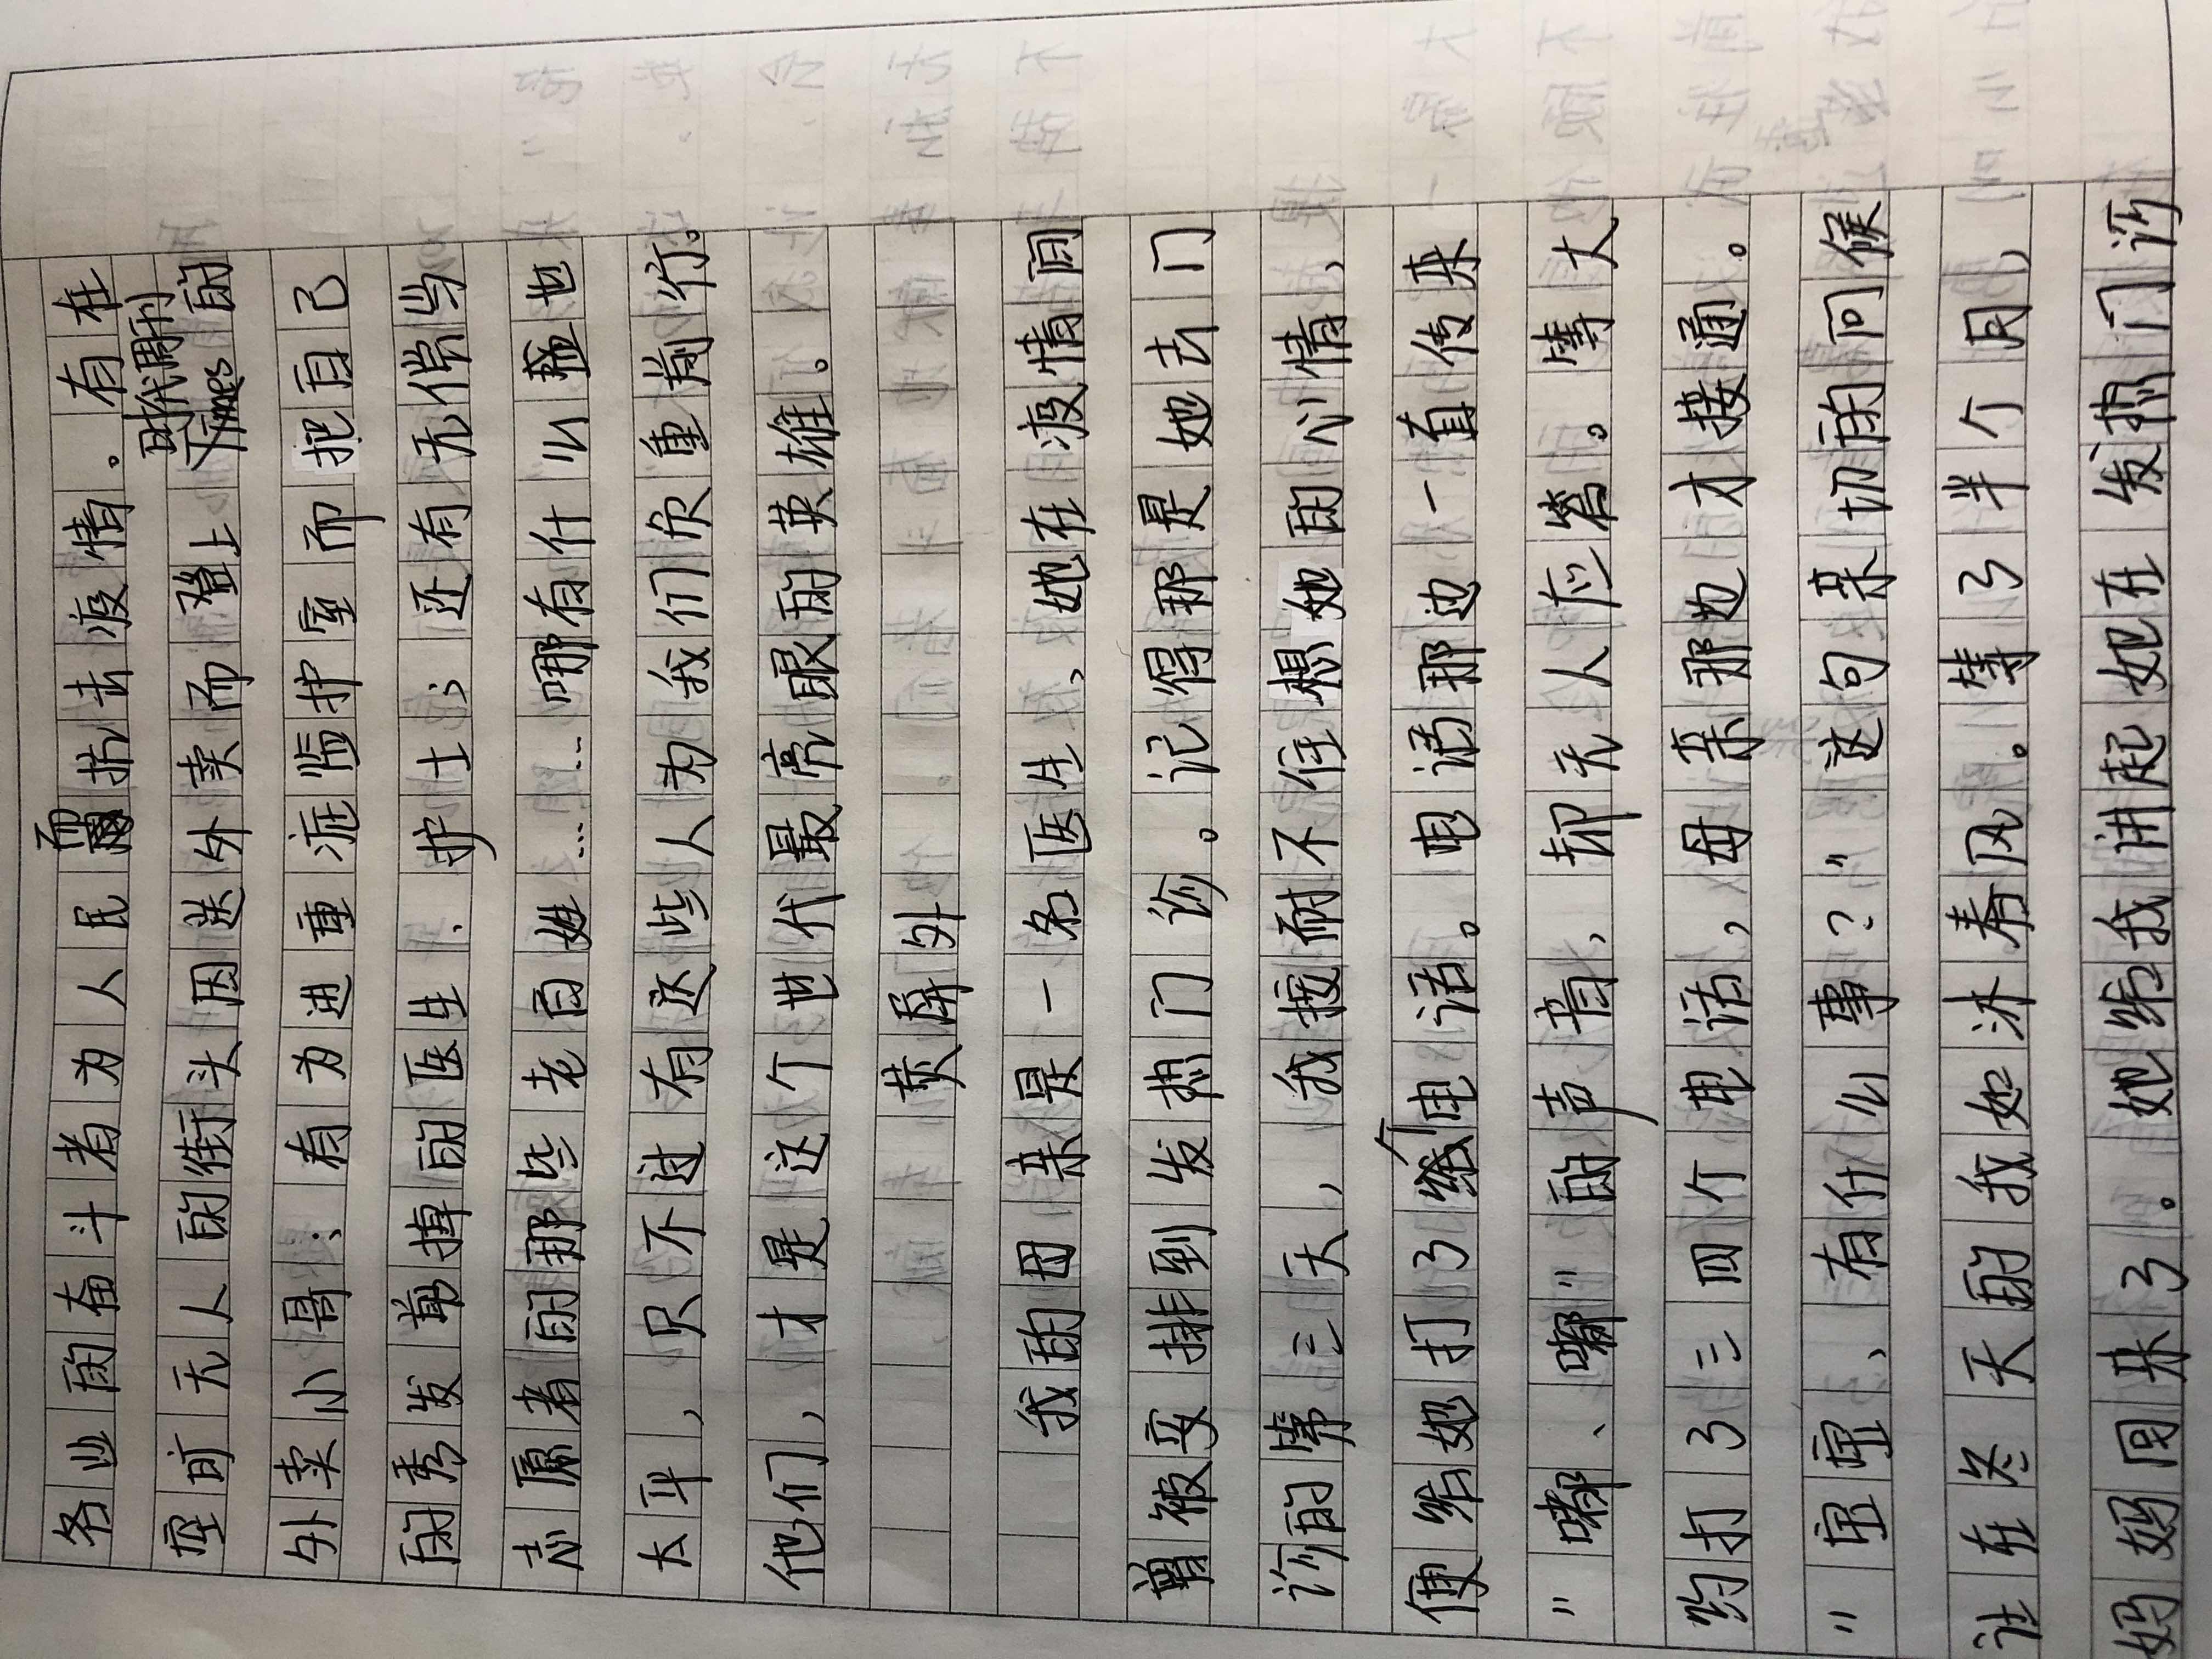 务业的奋斗者为人民而抗去疫情。有在
空旷无人的街头因送外卖而登上时代周刊的
外卖小哥;有为进重症监护室而把自己
的秀发剪掉的医生、护士;还有无偿当
志愿者的那些老百姓……哪有什么
太平,只不过有这些人为我们负重前行。
他们,才是这个世代最亮眼的英雄。
荧屏外
我的母亲是一名医生,她在疫情间
曾被安排到发热门诊。记得那是她去门
诊的第三天,我按耐不住想她的心情,
便给她打了个电话。电话那边一直传来
“嘟、嘟”的声音,却无人应答。等大
约打了三四个电话,母亲那边才接通。
“宝宝,有什么事?”这句亲切的问候
让在冬天的我如沐春风。等了半个月,
妈妈回来了。她给我讲起她在发热门诊